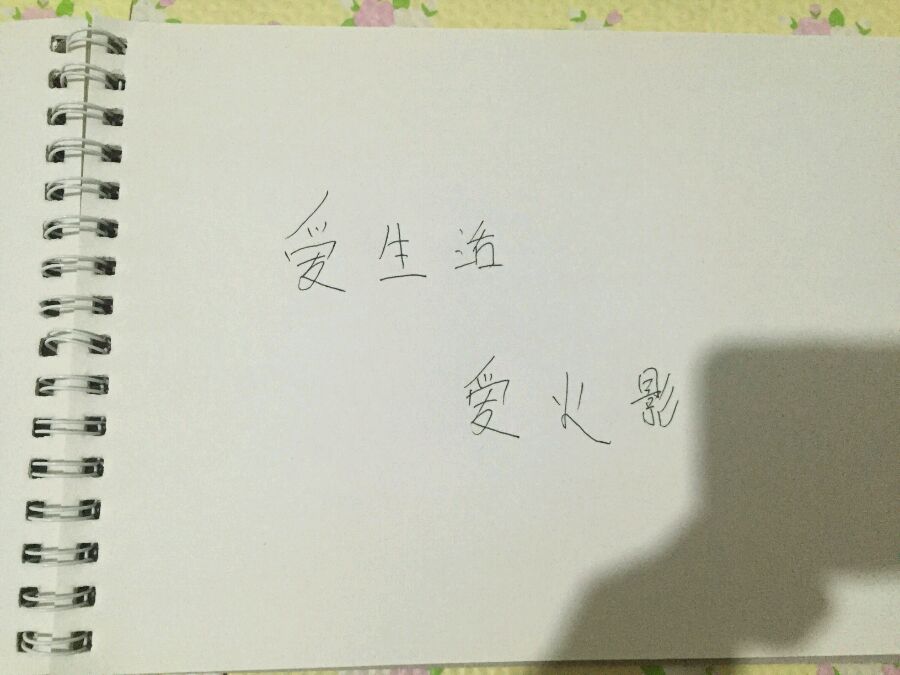 爱生活
爱火影